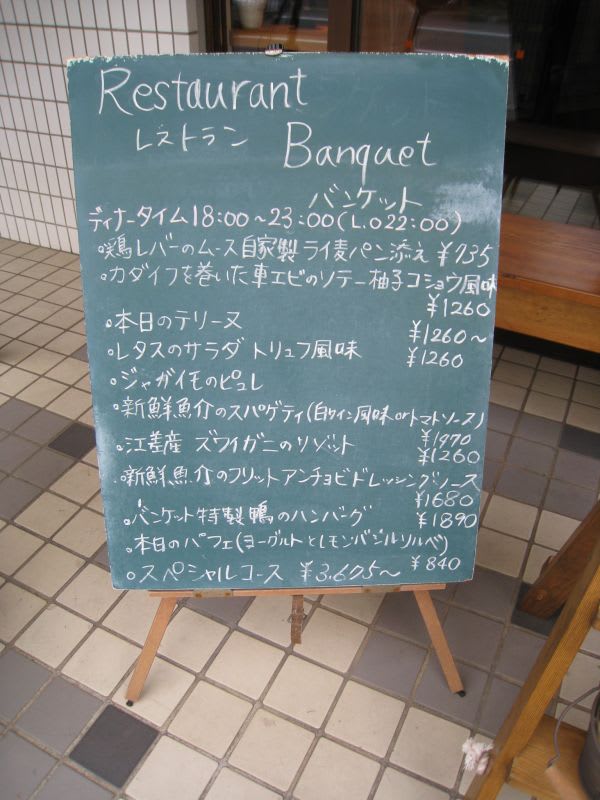 Restaurant
レストラン
Banquet
バンケット
ディナータイム18:00~23:00(L.O22:00)
。鶏レバーのムース自家製ライ麦パン添え ¥735
。カダイフを巻いた車エビのソテー柚子コショウ風味
¥1260
。本日のテリーヌ ¥1260~
。レタスのサラダ トリュフ風味 ¥1260
。ジャガイモのピュレ
。新鮮魚介のスパゲティ(白ワイン風味orトマトソース)
¥1970
。江差産 ズワイガニのリゾット ¥1260
。新鮮魚介のフリットアンチョビドレッシングソース
¥1680
。バンケット特製鴨のハンバーグ ¥1890
。本日のパフェ(ヨーグルトとレモンバジルソルベ)
¥840
。スペシャルコース ¥3.675~